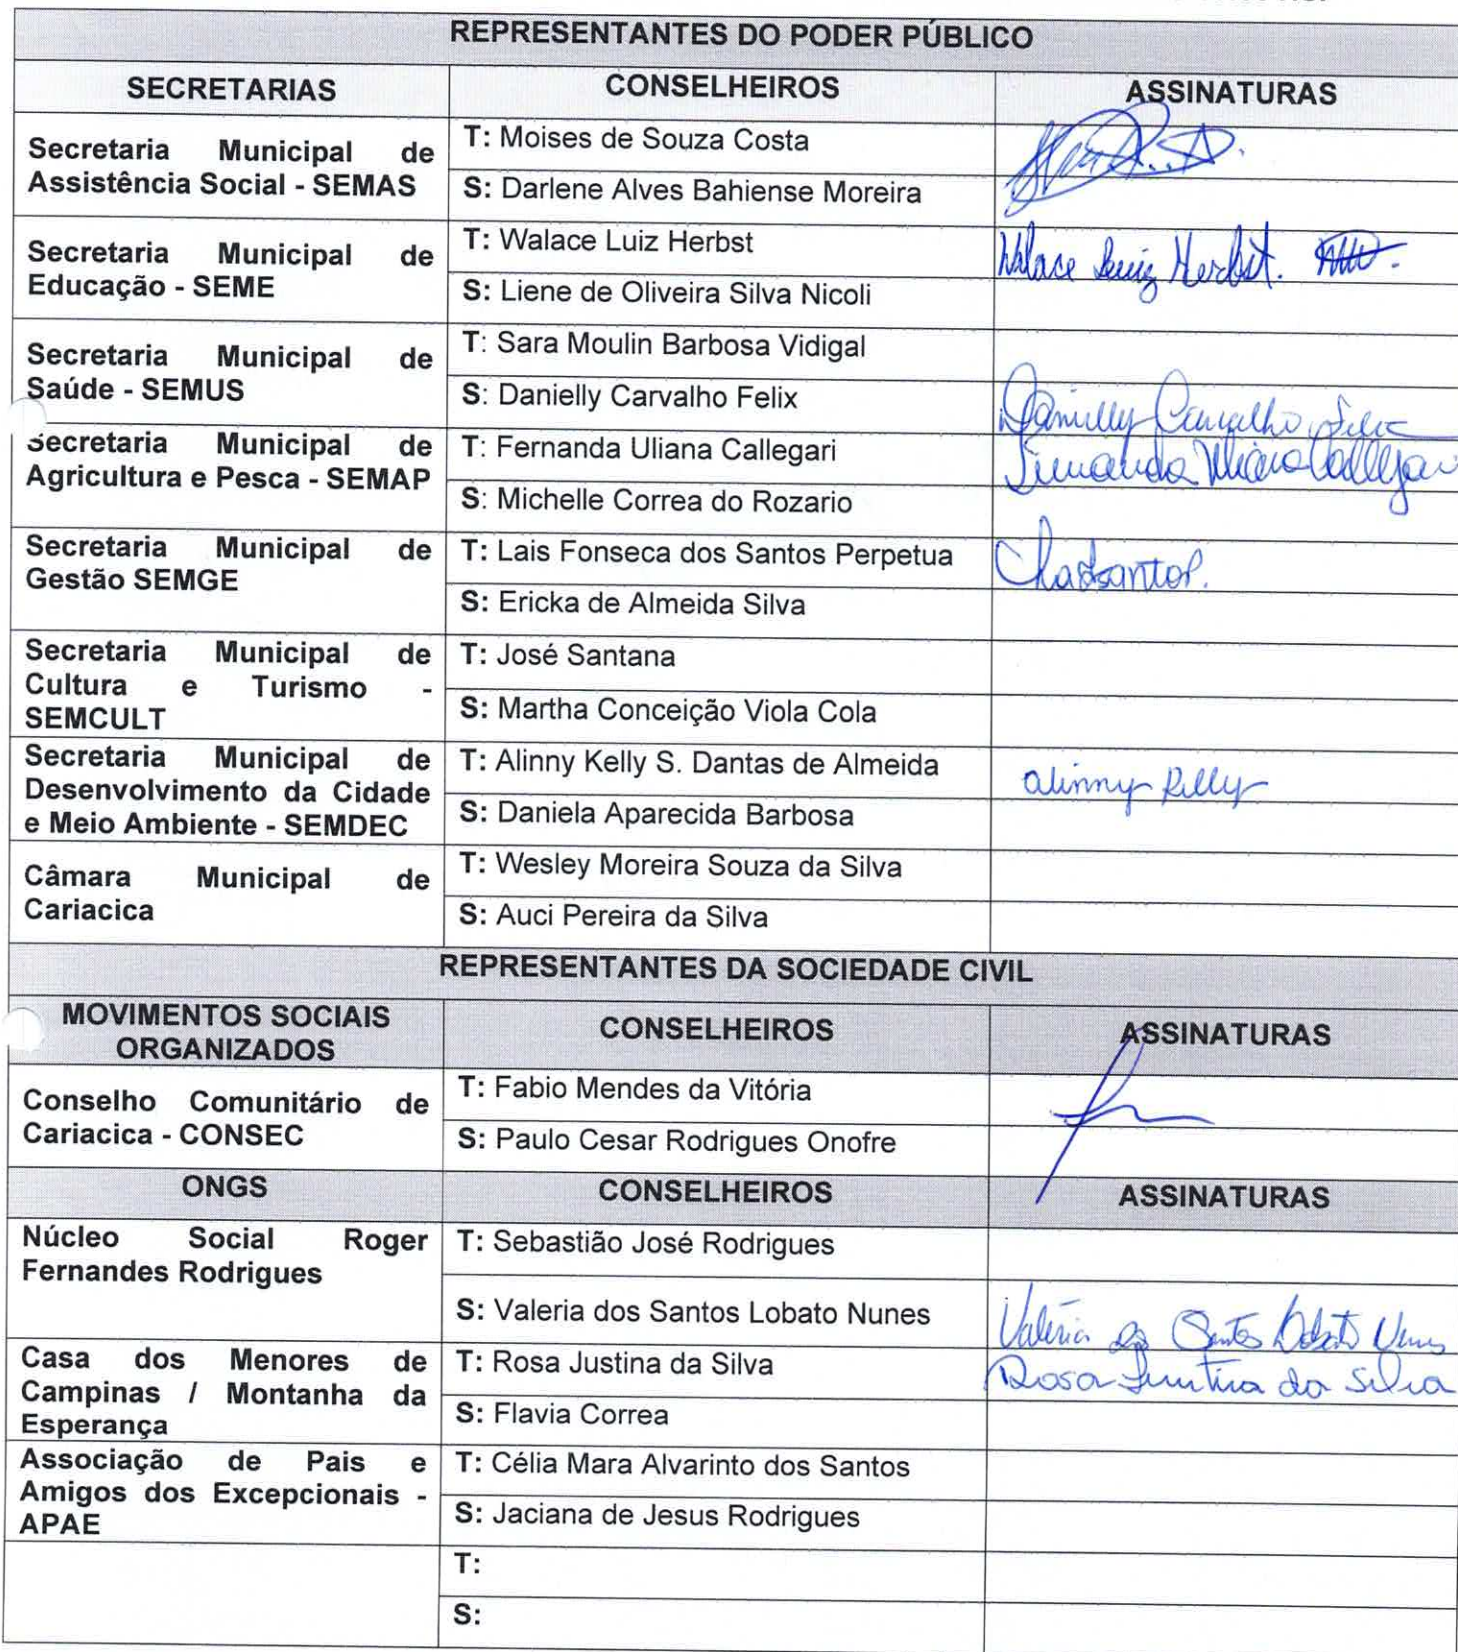 REPRESENTANTES DO PODER PÚBLICO
SECRETARIAS CONSELHEIROS ASSINATURAS
Secretaria Municipal de
Assistência Social - SEMAS
T: Moises de Souza Costa
S: Darlene Alves Bahiense Moreira
Secretaria Municipal de
Educação - SEME
T: Walace Luiz Herbst
Walace Luiz Herbst.
S: Liene de Oliveira Silva Nicoli
Secretaria Municipal de
Saúde - SEMUS
T: Sara Moulin Barbosa Vidigal
S: Danielly Carvalho Felix
Danielly Carvalho Felix
Secretaria Municipal de
Agricultura e Pesca - SEMAP
T: Fernanda Uliana Callegari
Fernanda Uliana Callegari
S: Michelle Correa do Rozario
Secretaria Municipal de
Gestão SEMGE
T: Lais Fonseca dos Santos Perpetua
S: Ericka de Almeida Silva
Secretaria Municipal de
Cultura e Turismo -
SEMCULT
T: José Santana
S: Martha Conceição Viola Cola
Secretaria Municipal de
Desenvolvimento da Cidade
e Meio Ambiente - SEMDEC
T: Alinny Kelly S. Dantas de Almeida
alinny Kelly
S: Daniela Aparecida Barbosa
Câmara Municipal de
Cariacica
T: Wesley Moreira Souza da Silva
S: Auci Pereira da Silva
REPRESENTANTES DA SOCIEDADE CIVIL
MOVIMENTOS SOCIAIS
ORGANIZADOS
CONSELHEIROS ASSINATURAS
Conselho Comunitário de
Cariacica - CONSEC
T: Fabio Mendes da Vitória
S: Paulo Cesar Rodrigues Onofre
ONGS CONSELHEIROS ASSINATURAS
Núcleo Social Roger
Fernandes Rodrigues
T: Sebastião José Rodrigues
S: Valeria dos Santos Lobato Nunes
Valéria dos Santos Lobato Nunes
Casa dos Menores de
Campinas / Montanha da
Esperança
T: Rosa Justina da Silva
Rosa Justina da Silva
S: Flavia Correa
Associação de Pais e
Amigos dos Excepcionais -
APAE
T: Célia Mara Alvarinto dos Santos
S: Jaciana de Jesus Rodrigues
T:
S: